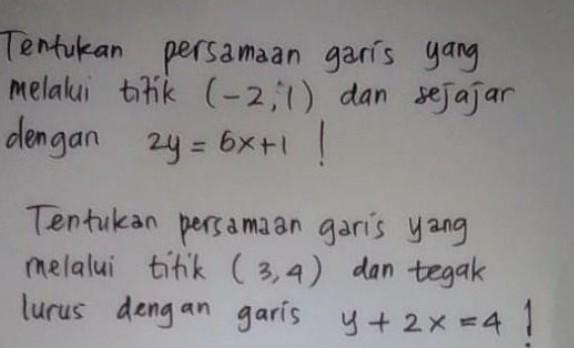 Tentukan persamaan garis yang
melalui titik (-2,1) dan sejajar
dengan 2y = 6x+1 !
Tentukan persamaan garis yang
melalui titik (3,4) dan tegak
lurus dengan garis y + 2x = 4 !